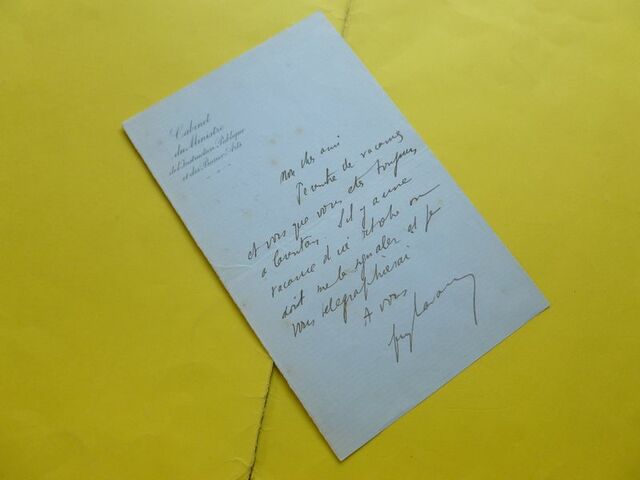 Cabinet
du Ministre
de l'Instruction Publique
et des Beaux-Arts
Mon cher ami
Je rentre de vacances
et vois que vous êtes toujours
à . S'il y a une
vacance d'ici on
doit me la signaler et je
vous télégraphierai
A vous